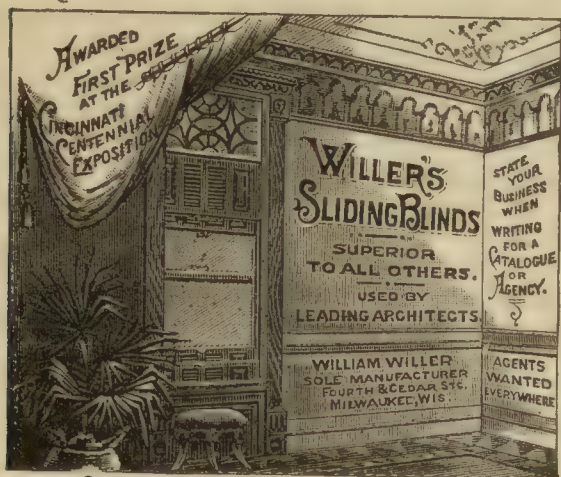 AWARDED
FIRST PRIZE
AT THE
CINCINNATI
CENTENNIAL
EXPOSITION
WILLER'S
SLIDING BLINDS
SUPERIOR
TO ALL OTHERS.
USED BY
LEADING ARCHITECTS.
WILLIAM WILLER
SOLE MANUFACTURER
FOURTH & CEDAR STS.
MILWAUKEE, WIS
STATE
YOUR
BUSINESS
WHEN
WRITING
FOR A
CATALOGUE
OR
AGENCY.
AGENTS
WANTED
EVERYWHERE